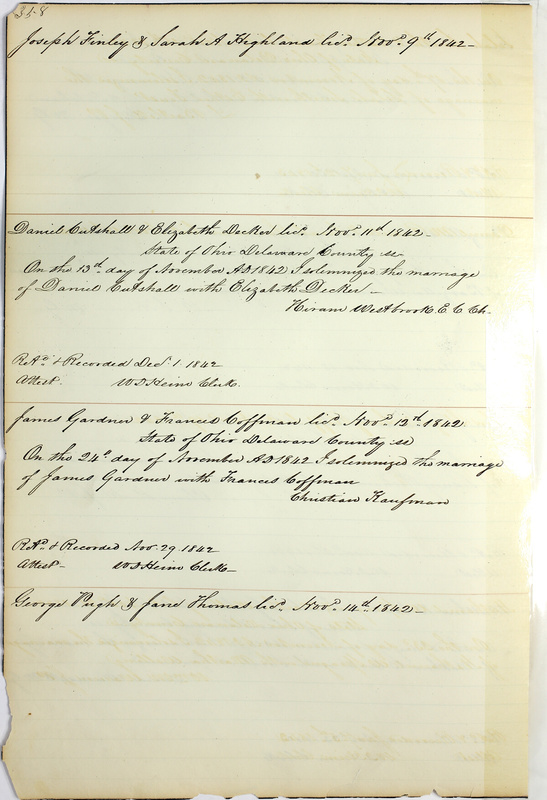 318
Joseph Finley & Sarah A Highland licd. Novr. 9th 1842 —
Daniel Cutshall & Elizabeth Decker licd. Novr. 11th 1842 —
State of Ohio Delaware County ss
On the 13th day of November AD 1842 I solemnized the marriage
of Daniel Cutshall with Elizabeth Decker —
Hiram Westbrook E. C. Ch.
Retd. & Recorded Decr. 1 1842
Attest. W D Heim Clerk.
James Gardner & Frances Coffman licd. Novr. 12th 1842
State of Ohio Delaware County ss
On the 24th day of November AD 1842 I solemnized the marriage
of James Gardner with Frances Coffman
Christian Kaufman
Retd. & Recorded Nov. 29. 1842
Attest — W D Heim Clerk —
George Pugh & Jane Thomas licd. Novr. 14th 1842 —